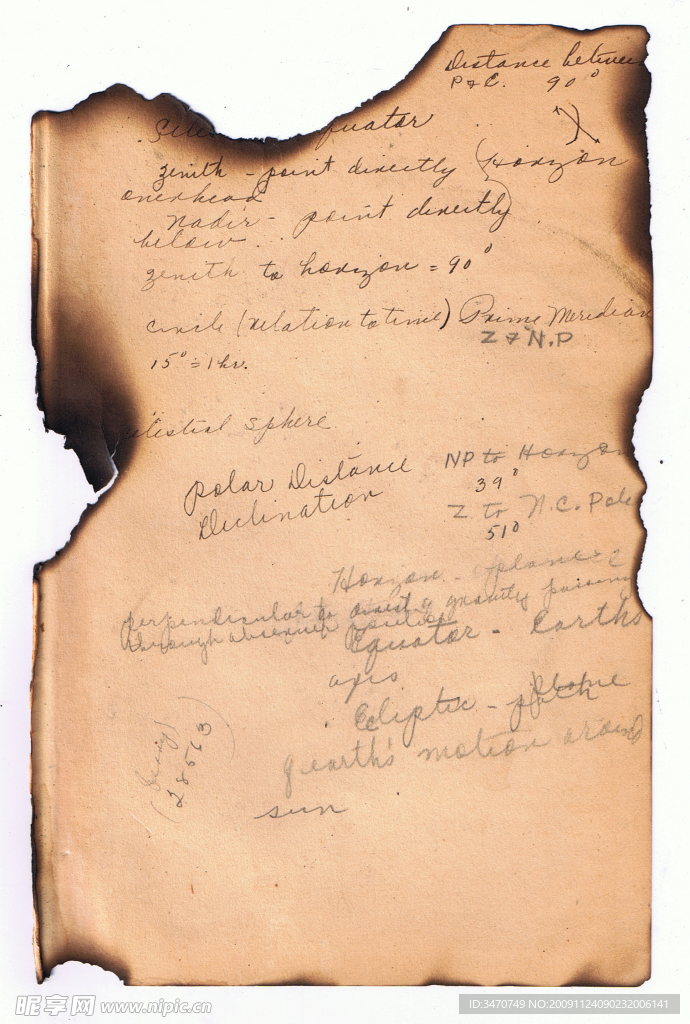 Distance between
P & E. 90°
quator
zenith - point directly (Horizon
overhead
nadir - point directly)
below
zenith to horizon = 90°
circle (relation to time) Prime Meridian
Z & N.P
15° = 1 hr.
elestial sphere
Polar Distance
Declination
NP to Horizon
39°
Z to N.C. Pole
51°
Horizon - plane
perpendicular to gravity passing
through observer
Equator - Earth's
axis
Ecliptic - path plane
of earth's motion around
sun
28563
昵享网 www.nipic.cn
ID:3470749 NO:20091124090232006141